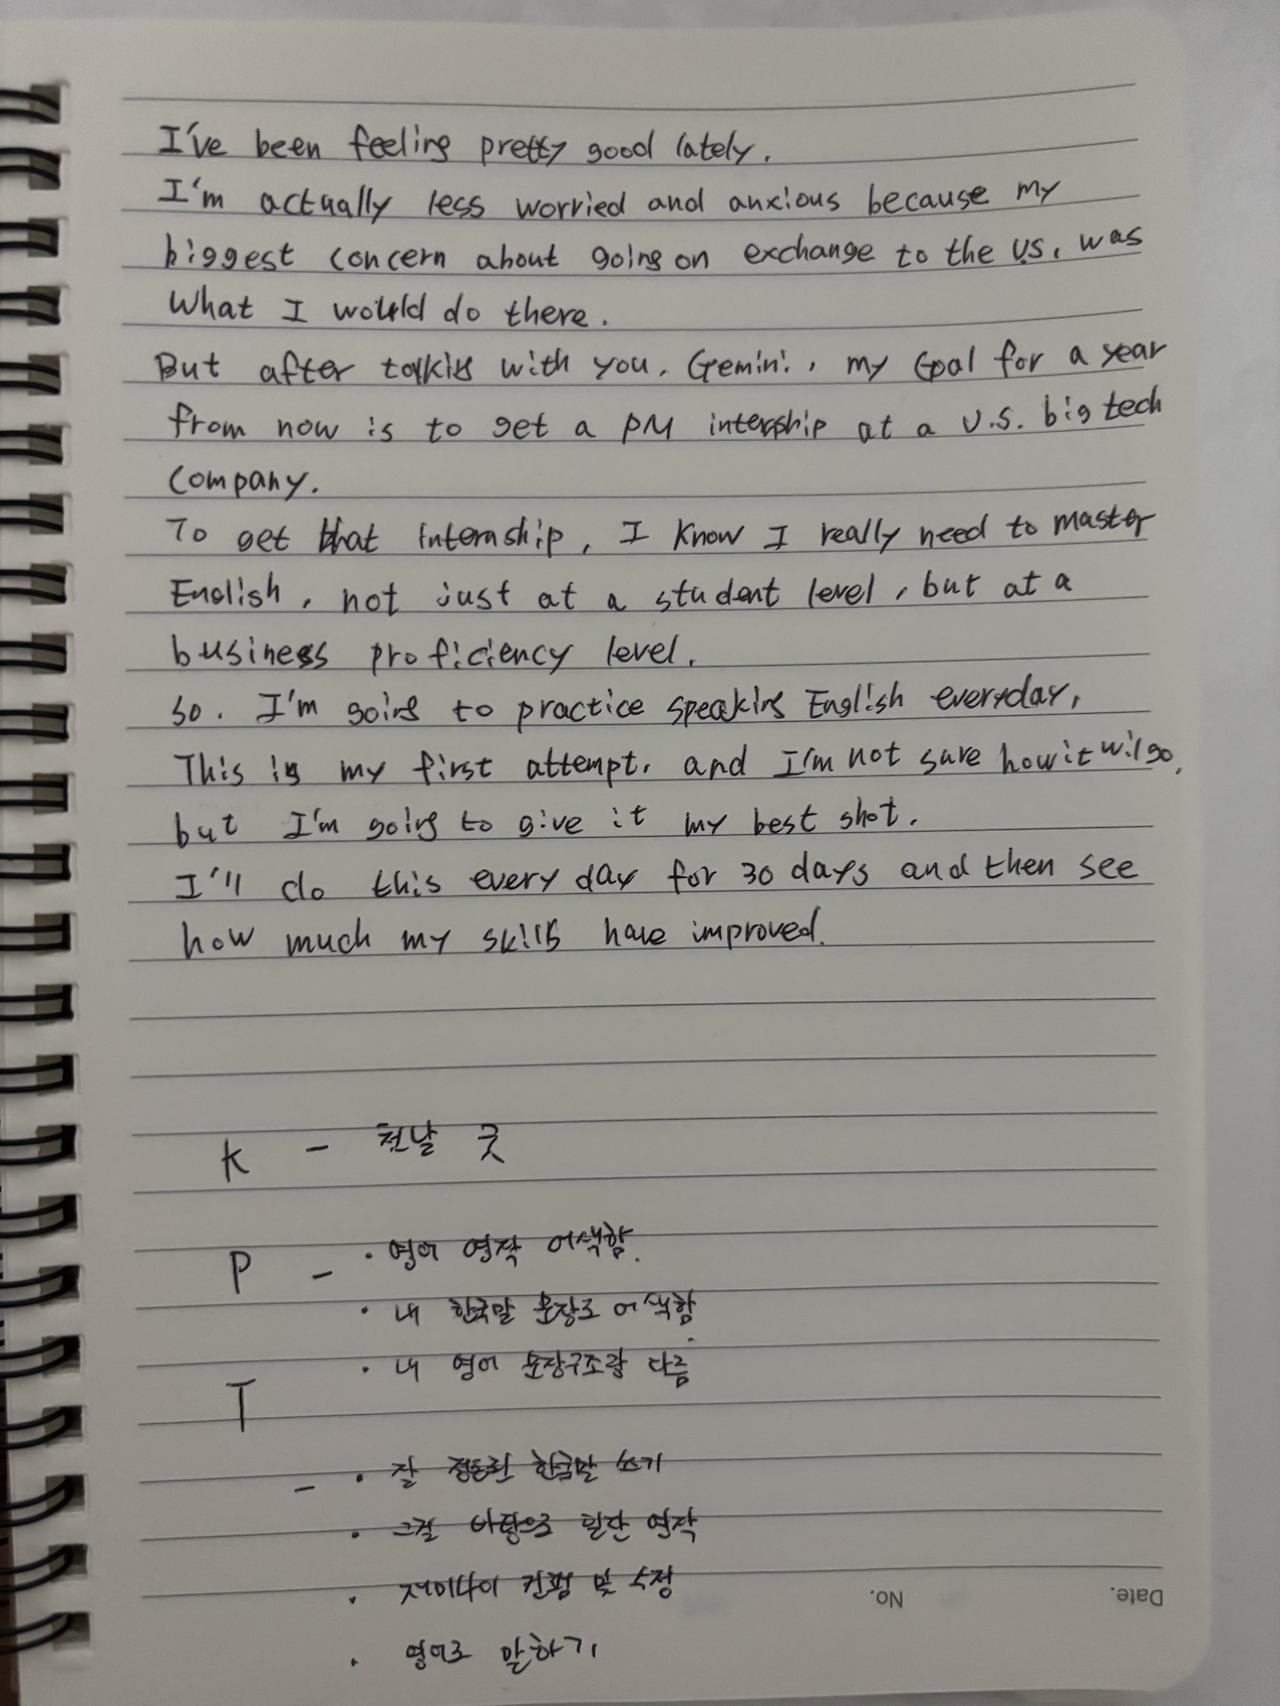 I've been feeling pretty good lately.
I'm actually less worried and anxious because my
biggest concern about going on exchange to the U.S. was
what I would do there.
But after talking with you, Gemini, my Goal for a year
from now is to get a PM internship at a U.S. big tech
company.
To get that internship, I know I really need to master
English, not just at a student level, but at a
business proficiency level.
So, I'm going to practice speaking English everyday.
This is my first attempt, and I'm not sure how it wil go,
but I'm going to give it my best shot.
I'll do this every day for 30 days and then see
how much my skills have improved.
K - 첫날 굿
P - · 영어 영작 어색함.
· 내 한국말 문장도 어색함.
· 내 영어 문장구조랑 다름
T
- · 잘 정돈된 한국말 쓰기
· 그걸 바탕으로 일단 영작
· 제미나이 컨펌 및 수정
· 영어로 말하기
Date.
No.